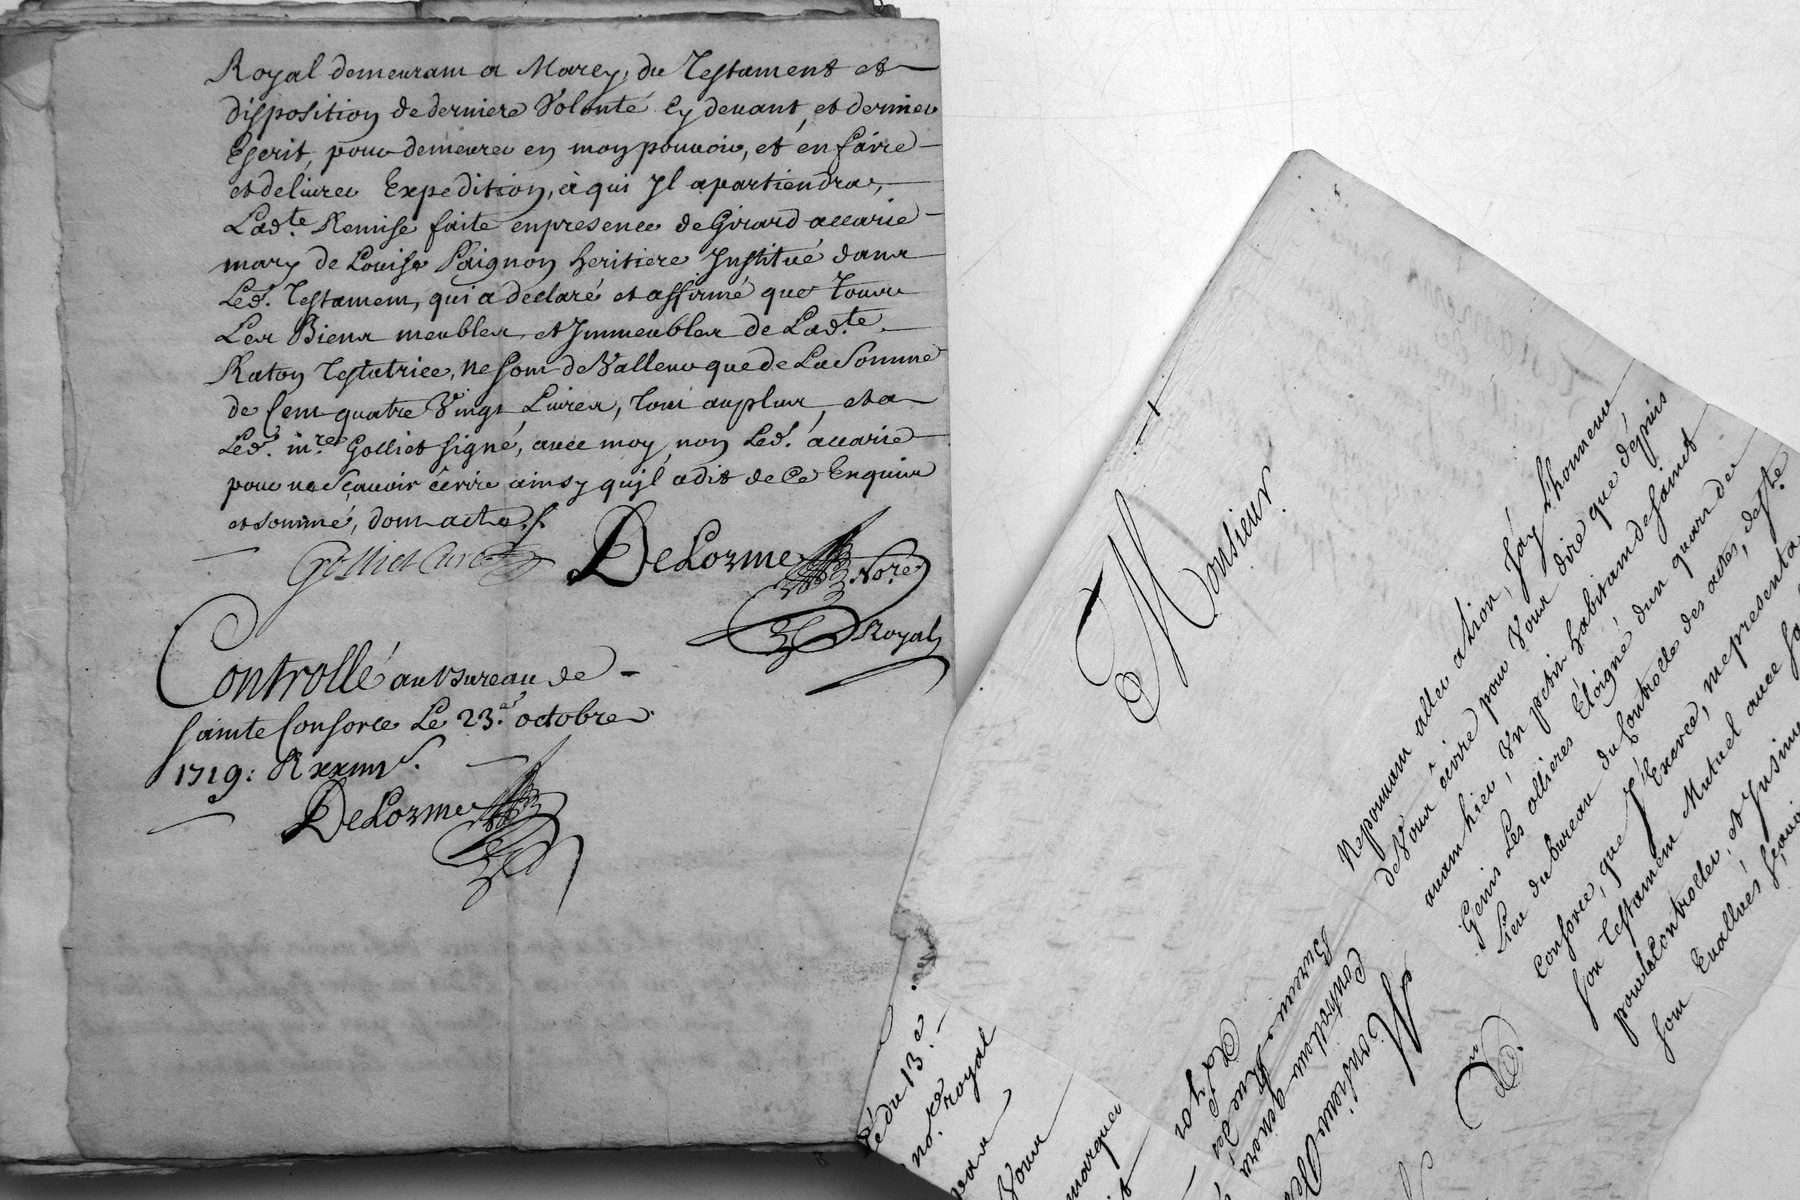 Royal demeurant a Marcy, du Testament et
disposition de derniere Volonté Cy devant, et dernier
Escrit, pour demeurer en mon pouvoir, et en faire
et delivrer Expedition, à qui Jl apartiendra,
Lad.te Remise faite en presence de Girard accarie
mary de Louise Paignon heritiere Jnstitué dans
Led. Testament, qui a declaré et affirmé que Tous
Les Biens meubles et Jmmeubles de Lad.te
Raton Testatrice, ne sont de Valleur que de La Somme
de Cent quatre Vingt Livres, Tout au plus, et a
Led. m.re Golliet signé, avec moy, non Led. accarie
pour ne Sçavoir écrire ainsy qu'jl a dit de Ce Enquis
et sommé, dont acte
Golliet Curé DeLorme No.re
Royal
Controllé au Bureau de
sainte Consorce Le 23.e octobre
1719: R xxiiij s.
DeLorme
Monsieur
Ne pouvant aller a Lion, J'ay L'honneur
de Vous écrire pour Vous dire que dépuis
avant hier, Vn petit habitant de Saint
Genis Les ollieres Eloigné d'un quart de
Lieu du bureau du Controlle des actes, de Ste
Consorce, que J'Exerce, me presenta
son Testament Mutuel avec sa
pour le Controller, et Jnsinu
sont Evallués sçavoi
Monsieur
Controlleur general
Bureau, Rue des
A Lyon
cé du 13.e
no.re royal
par
Vous
marquer